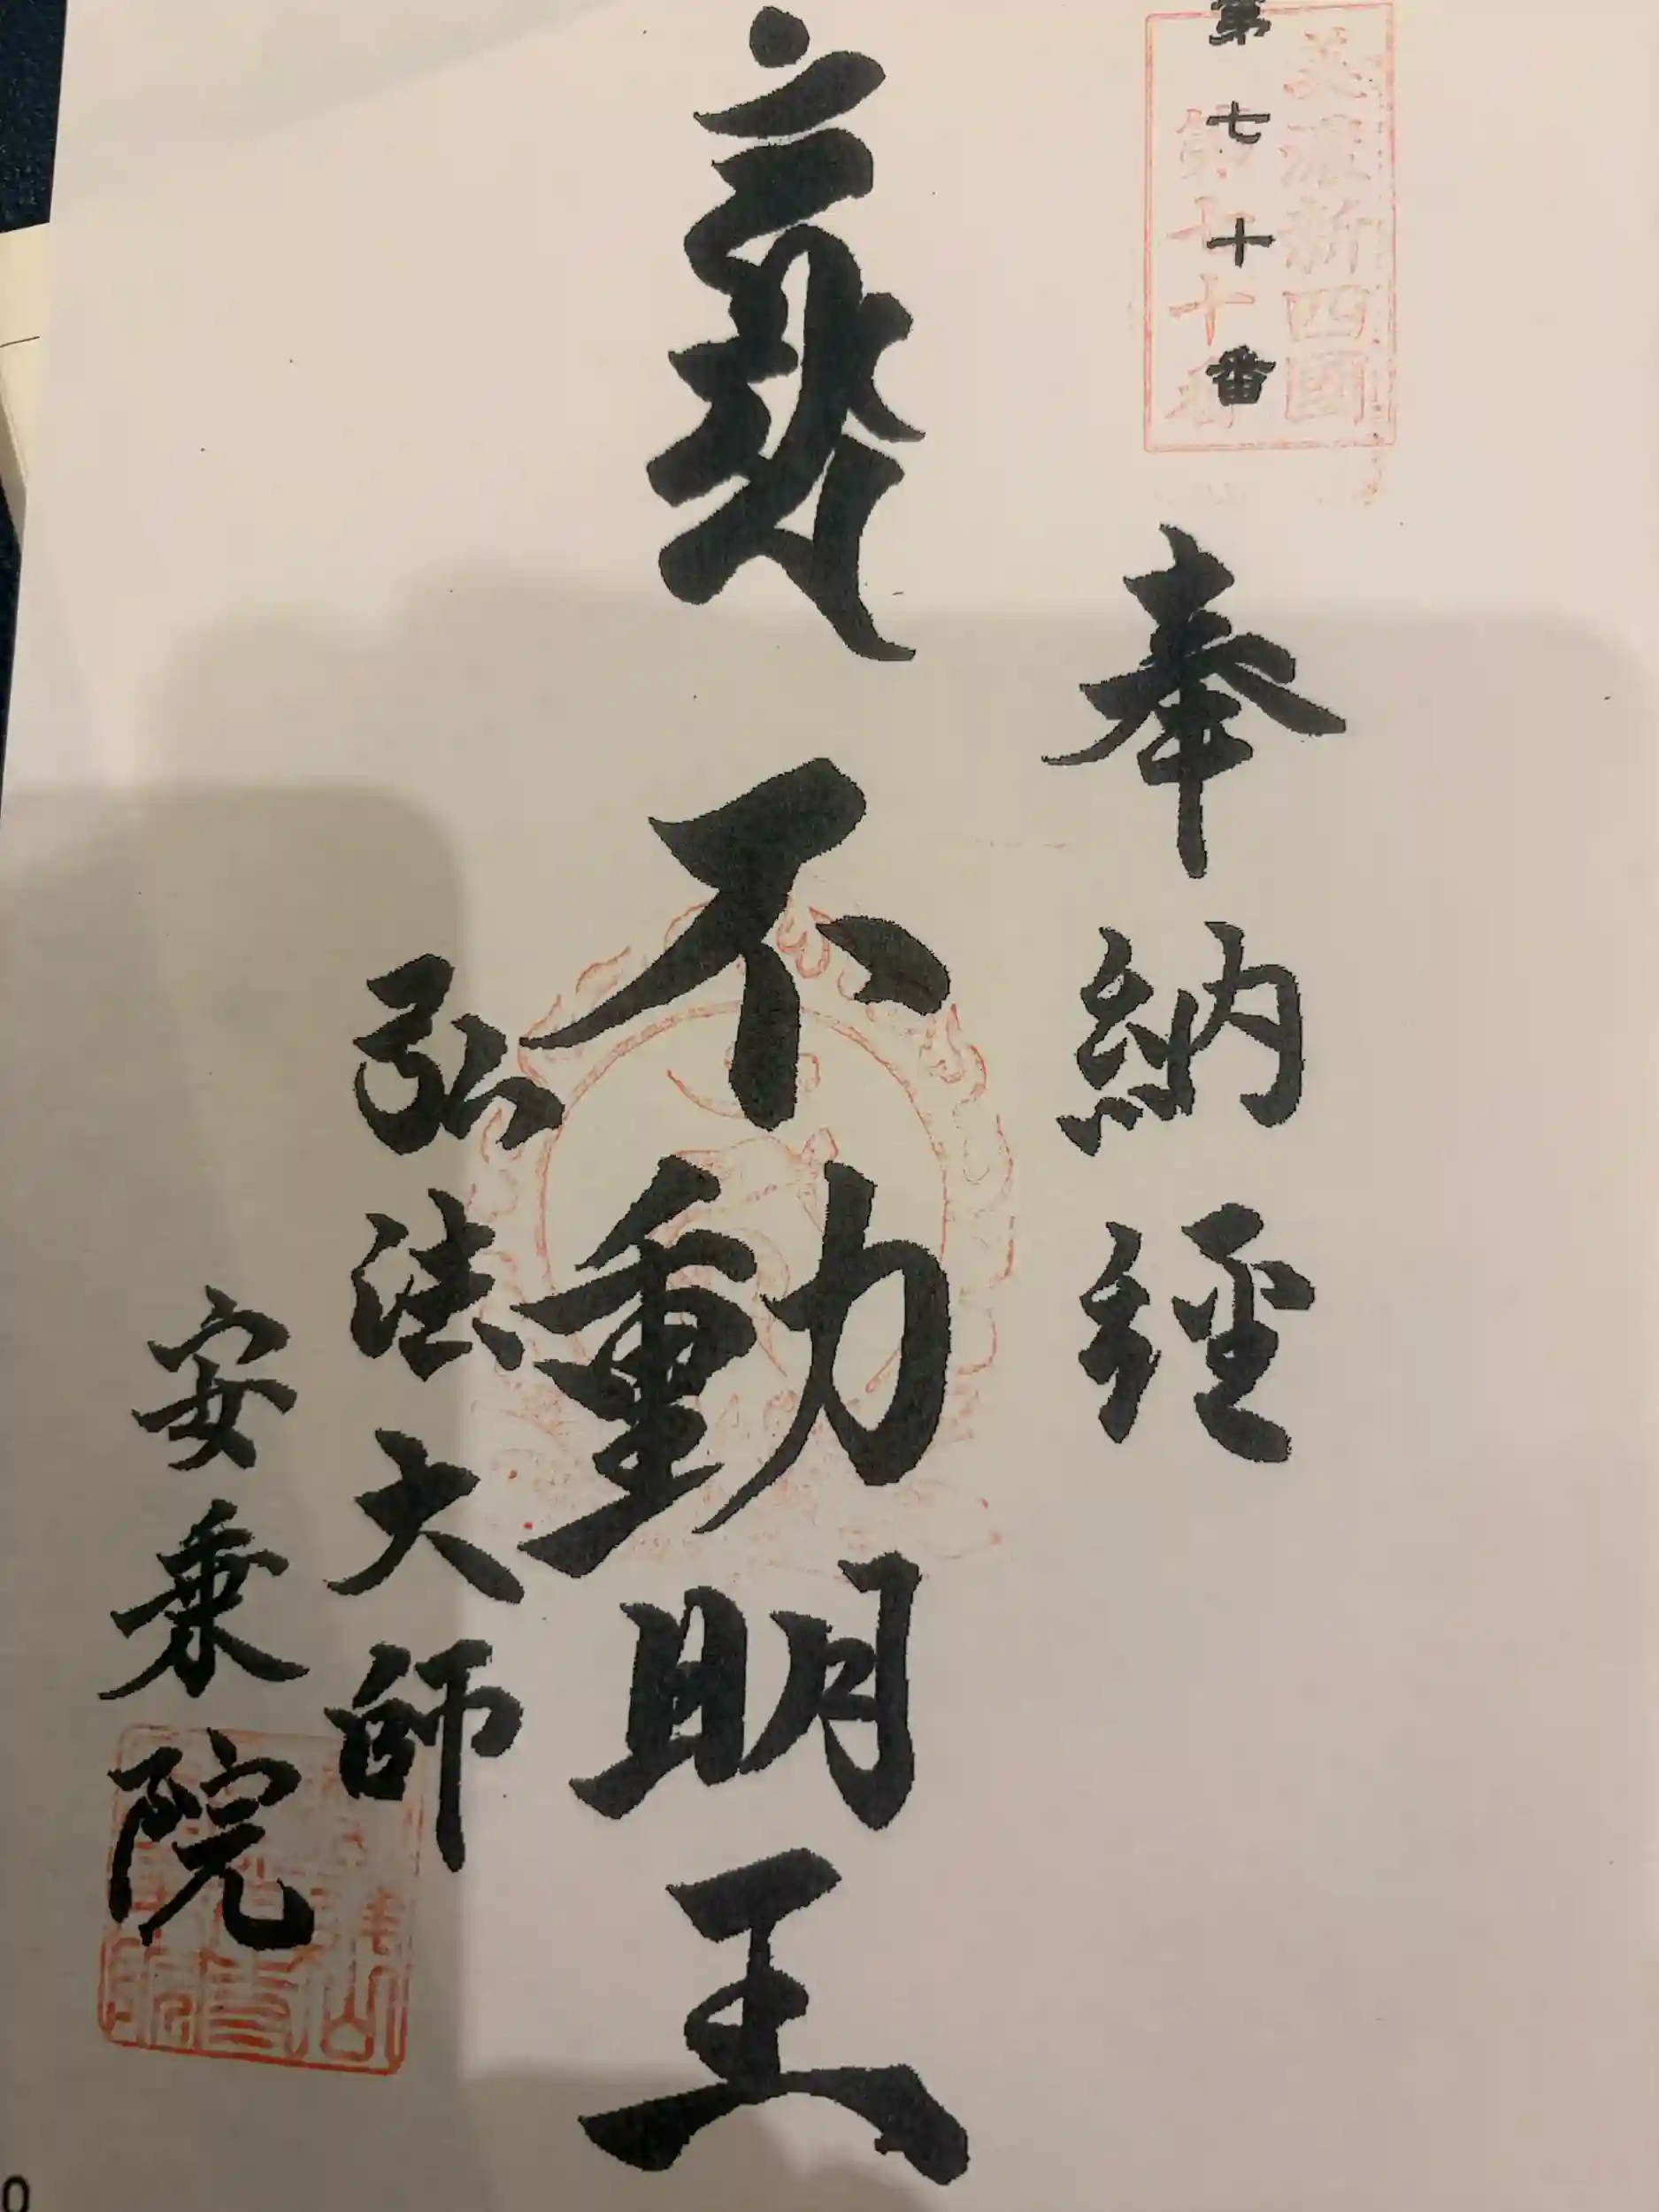 第七十番
美濃新四國
第七十番
奉納經
不動明王
弘法大師
安乗院
0